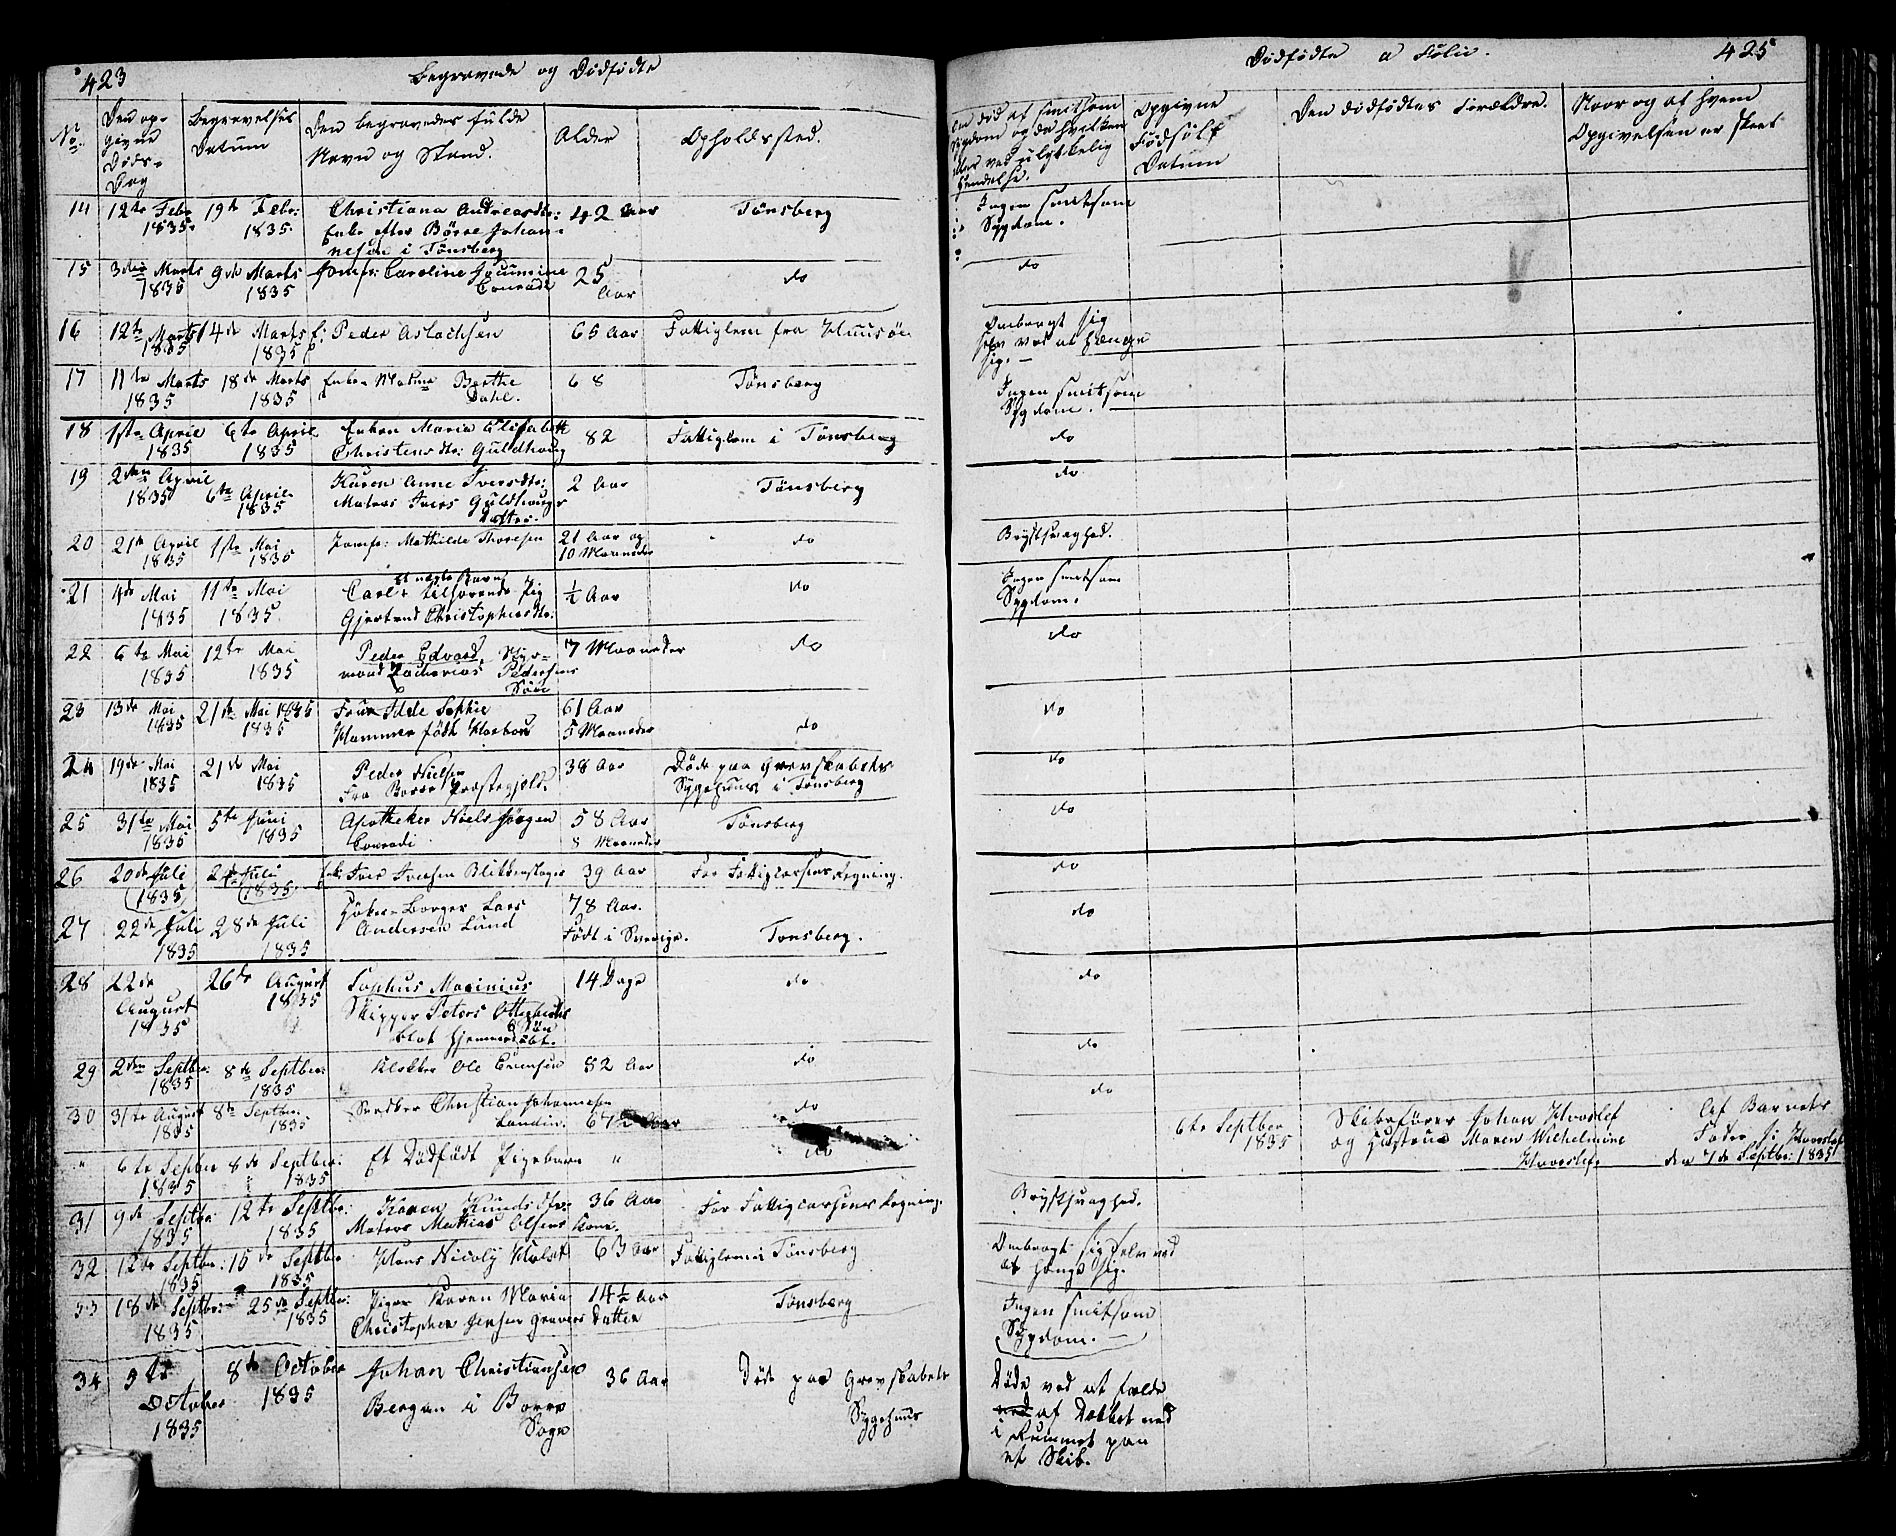 423
Begravede og Dødfødte
No.
Den op-
givne
Døds-
Dag
Begravelses
Datum
Den begravedes fulde
Navn og Stand.
Alder
Opholdssted.
14
12te Febr
1835.
19de Febr:
1835.
Christiana Andreasdtr:
Enke efter Börre Johan-
nesen i Tönsberg
42 Aar
Tönsberg
15
3die Marts
1835
9de Marts
1835
Jomfr: Caroline
Conradi
25
Aar
do
16
12te Marts
1835
14de Marts
1835
f: Peder Aslachsen
65 Aar
Fattiglem fra Huusöe
17
11te Marts
1835
18de Marts
1835
Enken Madme Berthe
Dahl.
68
Tönsberg
18
1ste April
1835
6te April
1835
Enken Maria Elisabeth
Christensdtr: Guldhoug
82
Fattiglem i Tönsberg
19
2den April
1835
6te April
1835
Karen Anne Iversdtr:
Matros Ivers Guldhougs
Datter.
2 Aar
Tönsberg
20
21de April
1835
1ste Mai
1835
Jomfr: Mathilde Thoresen
21 Aar og
10 Maaneder
do
21
4de Mai
1835
11te Mai
1835
et uægte Barn
Carl tilhørende Pig
Gjertrud Christophersdtr:
½ Aar
do
22
6te Mai
1835
12te Mai
1835
Peder Edvard, Styr-
mand Zacharias Pedersens
Søn
7 Maaneder
do
23
13de Mai
1835
21de Mai 1835
1835
Frue Idde Sophie
Hammer født Harboe
61 Aar
5 Maaneder
do
24
19de Mai
1835
21de Mai
1835
Peder Nielsen
fra Borre Præstegjeld.
38 Aar
Døde paa Grevskabets
Sygehuus i Tönsberg
25
31te Mai
1835
5te Juni
1835
Apotheker Niels Jörgen
Conradi
58 Aar
8 Maaneder
Tönsberg
26
20de Juli
1835
24de Juli
1835
Iver Iversen Blikkenslager
39 Aar
For Fattigcassens Regning.
27
22de Juli
1835
28de Juli
1835
Høker-Borger Lars
Andersen Lund
78 Aar.
Født i Sverige.
Tonsberg.
28
22de
August
1835
26de August
1835
Sophus Marinius
Skipper Peters Otterbecks
Søn
blot hjemmedøbt.
14 Dage
do
29
2den Septbr:
1835
8de Septbr:
1835
Klokker Ole Evensen
52 Aar
do
30
31te August
1835
8de Septbr:
1835
Snedker Christian Johannesen
Lundin.
67½ Aar
do
"
6te Septbr
1835
8de Septbr:
1835
Et Dödfödt Pigebarn
"
do
31
9de Septbr
1835
12te Septbr:
1835
Karen Knudsdtr:
Matros Mathias Olsens Kone.
36 Aar
For Fattigcassens Regning.
32
12te Septbr:
1835
15de Septbr
1835
Hans Nicolij Holst
63 Aar
Fattiglem i Tönsberg
33
18de Septbr:
1835
25de Septbr:
1835
Pigen Karen Maria
Christopher Jensen Gravers Datter
14½ Aar
Tönsberg
34
5te
October
1835
8de October
1835
Johan Christiansen
Bergan i Borre
Sogn
36 Aar
Døde paa Grevskabets
Sygehuus
Dødfødte a Folie.
425
Om død af smitsom
Sygdom og da hvilken
eller ved ulykkelig
Hændelse.
Opgivne
Fødsels
Datum
Den dødfødtes Forældre.
Naar og af hvem
Opgivelsen er skeet
Ingen smitsom
Sygdom.
do
Ombragt sig
selv ved at hænge
sig.
Ingen smitsom
Sygdom.
do
do
Brystsvaghed.
Ingen smitsom
Sygdom.
do
do
do
do
do
do
do
do
do
6te Septber
1835
Skibsfører Johan Hvoslef
og Hustrue Maren Wilhelmine
Hvoslef.
Af Barnets
Fader Hvoslef
den 7de Septbr: 1835
Brystsvaghed.
Ombragt sig selv ved
at hænge sig.
Ingen smitsom
Sygdom.
Døde ved at falde
ned af Dækket ned
i Rummet paa
et Skib.